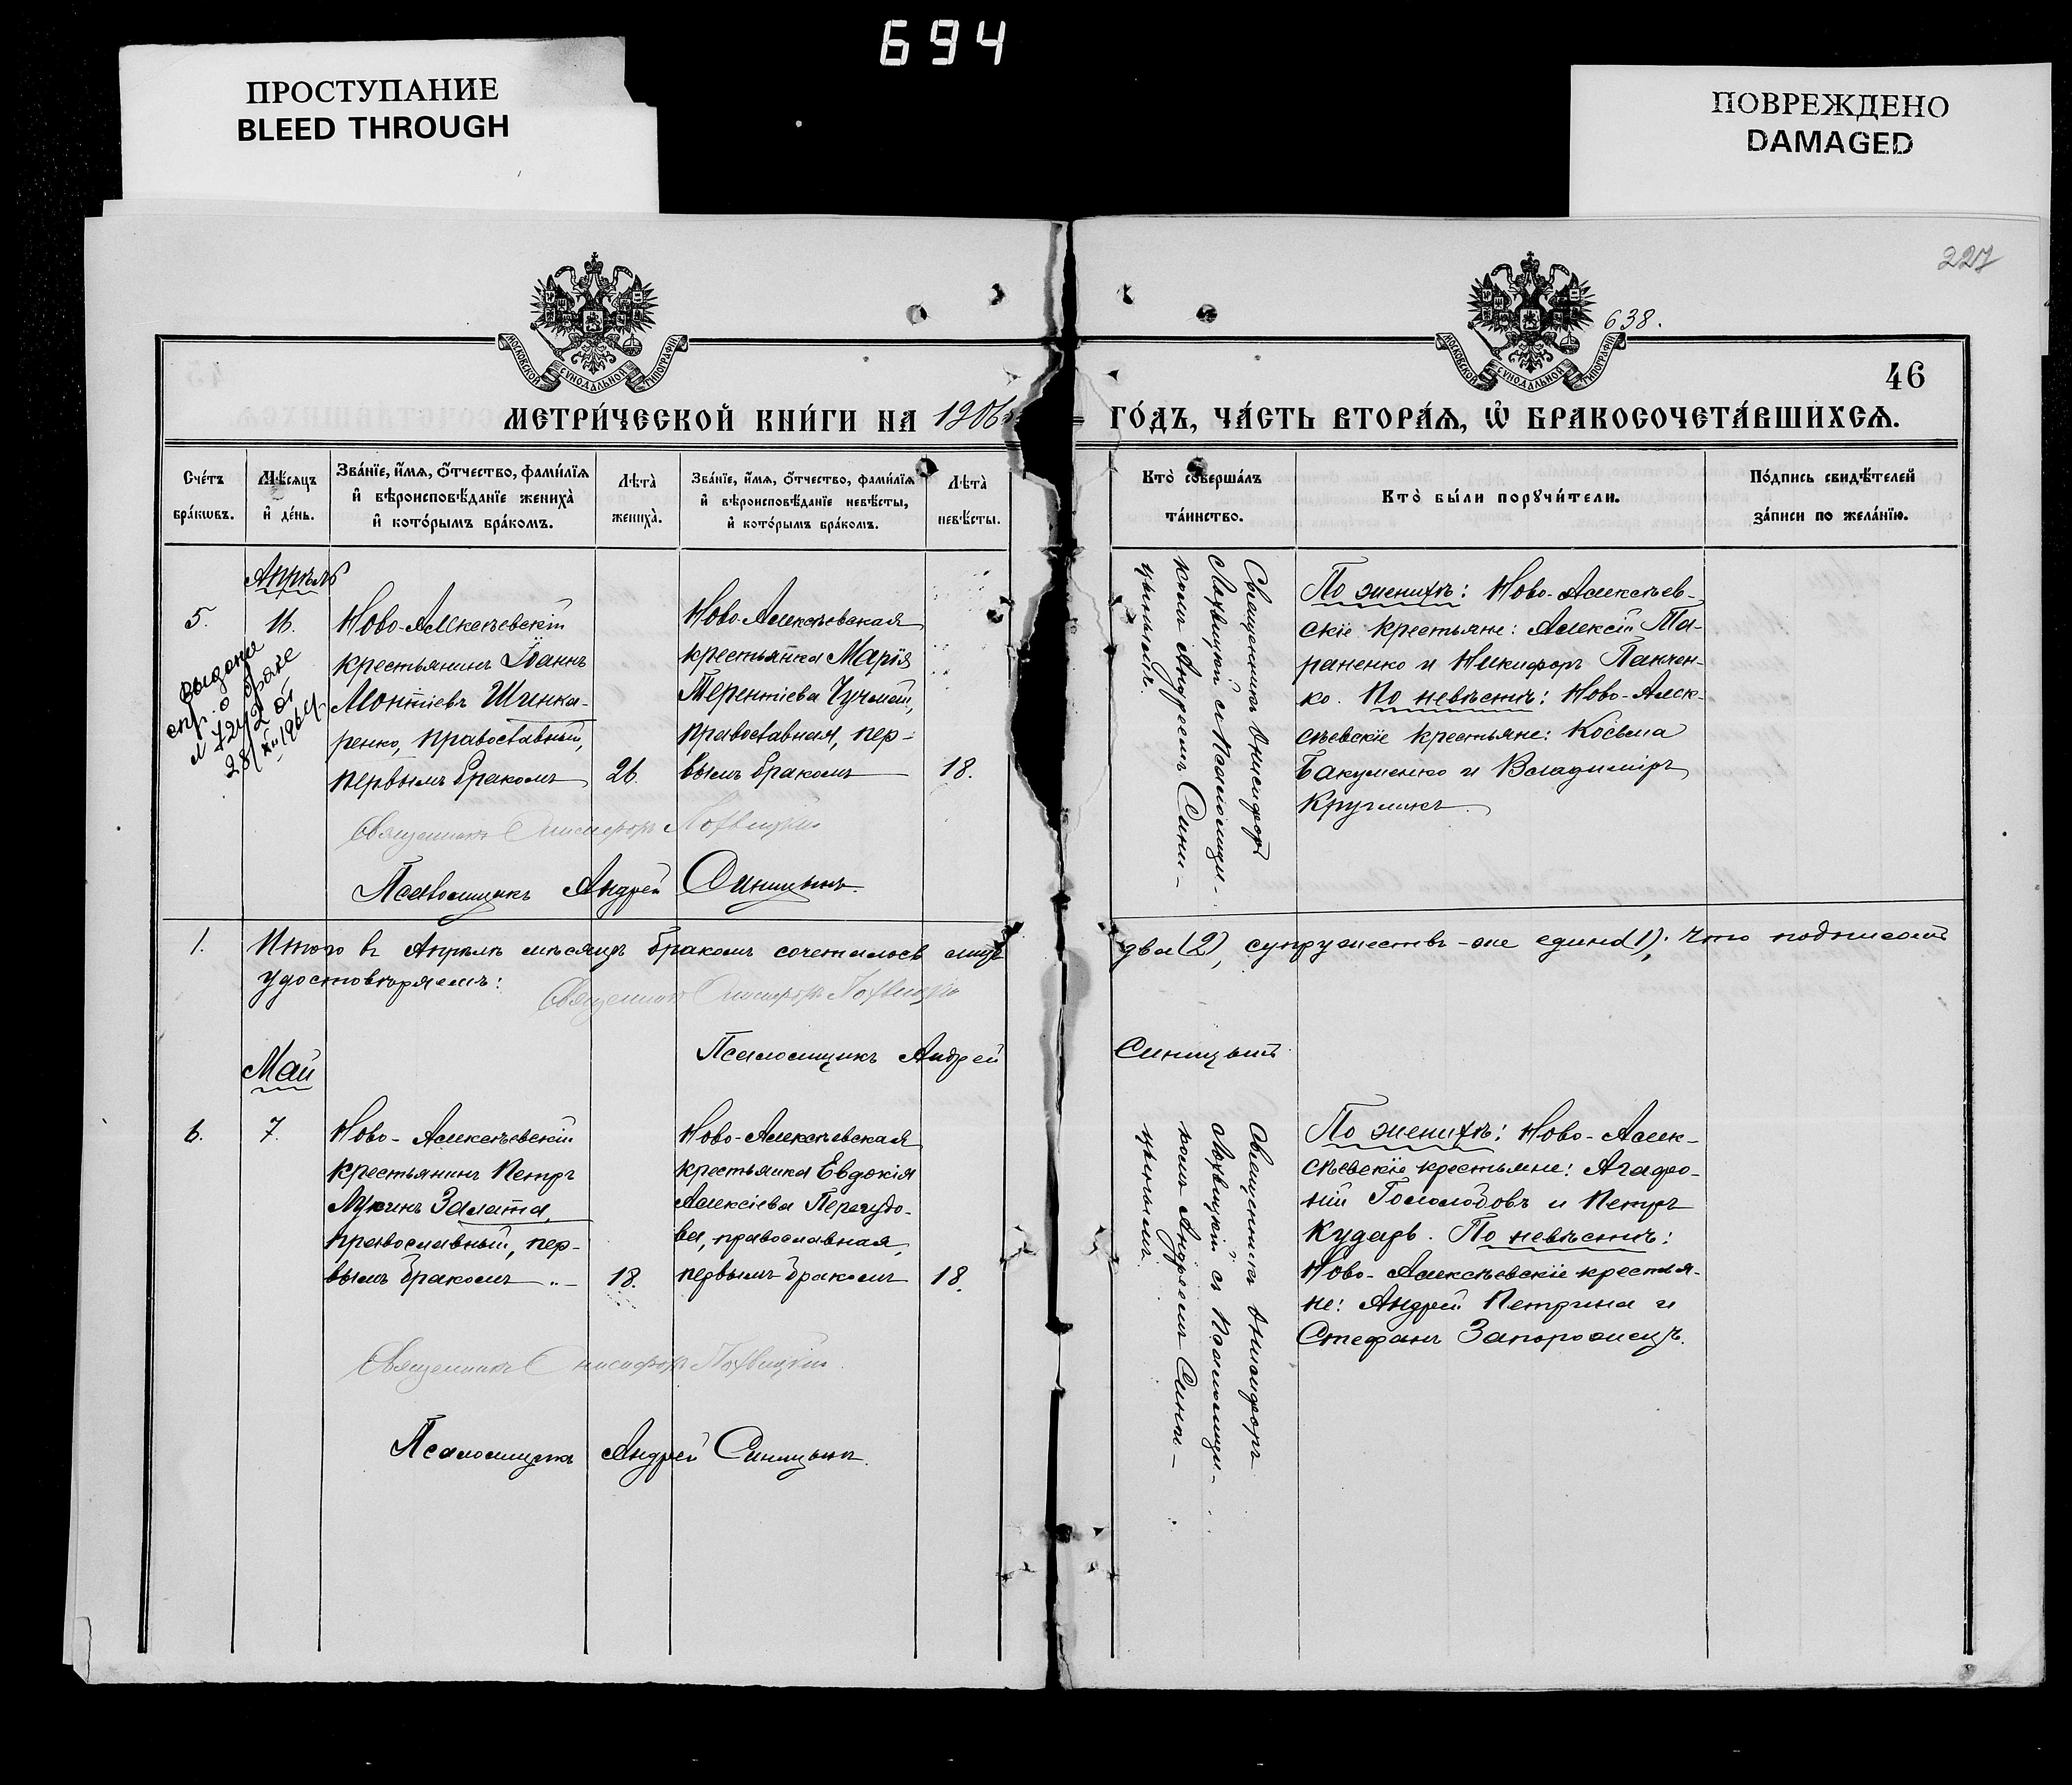 694
ПРОСТУПАНИЕ
BLEED THROUGH
ПОВРЕЖДЕНО
DAMAGED
227
638.
46
МОСКОВСКОЙ СѴНОДАЛЬНОЙ ТИПОГРАФІИ
МОСКОВСКОЙ СѴНОДАЛЬНОЙ ТИПОГРАФІИ
МЕТРИ́ЧЕСКОЙ КНИ́ГИ НА 1906
ГО́ДЪ, ЧА́СТЬ ВТОРА́Ѧ, Ѽ БРАКОСОЧЕТА́ВШИХСѦ.
Сче́тъ бра́кωвъ.
Мѣ́сѧцъ и҆ де́нь.
Зва́нїе, и҆́мѧ, ѻ҆́тчество, фами́лїѧ и҆ вѣроисповѣ́данїе жениха̀ и҆ кото́рымъ бра́комъ.
Лѣ́та̀ жениха̀.
Зва́нїе, и҆́мѧ, ѻ҆́тчество, фами́лїѧ и҆ вѣроисповѣ́данїе невѣ́сты, и҆ кото́рымъ бра́комъ.
Лѣ́та̀ невѣ́сты.
Кто̀ соверша́лъ та́инство.
Кто̀ бы́ли порꙋчи́тели.
По́дпись свидѣ́телей за́писи по жела́нїю.
Апрѣль
5.
16.
выдана
спр. о браке
N 7242 от
28/XII 1964
Ново-Алексѣевскій
крестьянинъ Іоаннъ
Леонтіевъ Шинка-
ренко, православный,
первымъ бракомъ
26.
Ново-Алексѣевская
крестьянка Марія
Терентіева
православная, пер-
вымъ бракомъ
18.
Священникъ Онисифоръ
Лохвицкій съ псаломщи-
комъ Андреемъ Сини-
цынымъ.
По женихѣ: Ново-Алексѣев-
скіе крестьяне: Алексій Та-
раненко и Никифоръ Панчен-
ко. По невѣстѣ: Ново-Алек-
сѣевскіе крестьяне: Косьма
Бакуменко и Владиміръ
Кругликъ.
Священникъ Онисифоръ Лохвицкій
Псаломщикъ Андрей Синицынъ
1.
Итого въ Апрѣлѣ мѣсяцѣ бракомъ сочеталось лицъ два (2), супружествъ-же едино (1); Что подписомъ
удостовѣряемъ:
Священникъ Онисифоръ Лохвицкій
Псаломщикъ Андрей Синицынъ
Май
6.
7.
Ново-Алексѣевскій
крестьянинъ Петръ
Лукинъ Залата,
православный, пер-
вымъ бракомъ
18.
Ново-Алексѣевская
крестьянка Евдокія
Алексіева Перегудо-
ва, православная,
первымъ бракомъ
18.
Священникъ Онисифоръ
Лохвицкій съ псаломщи-
комъ Андреемъ Сини-
цынымъ.
По женихѣ: Ново-Алек-
сѣевскіе крестьяне: Агафо-
ній Гололобовъ и Петръ
Кударь. По невѣстѣ:
Ново-Алексѣевскіе крестья-
не: Андрей Петрина и
Стефанъ Запорожецъ.
Священникъ Онисифоръ Лохвицкій.
Псаломщикъ Андрей Синицынъ.